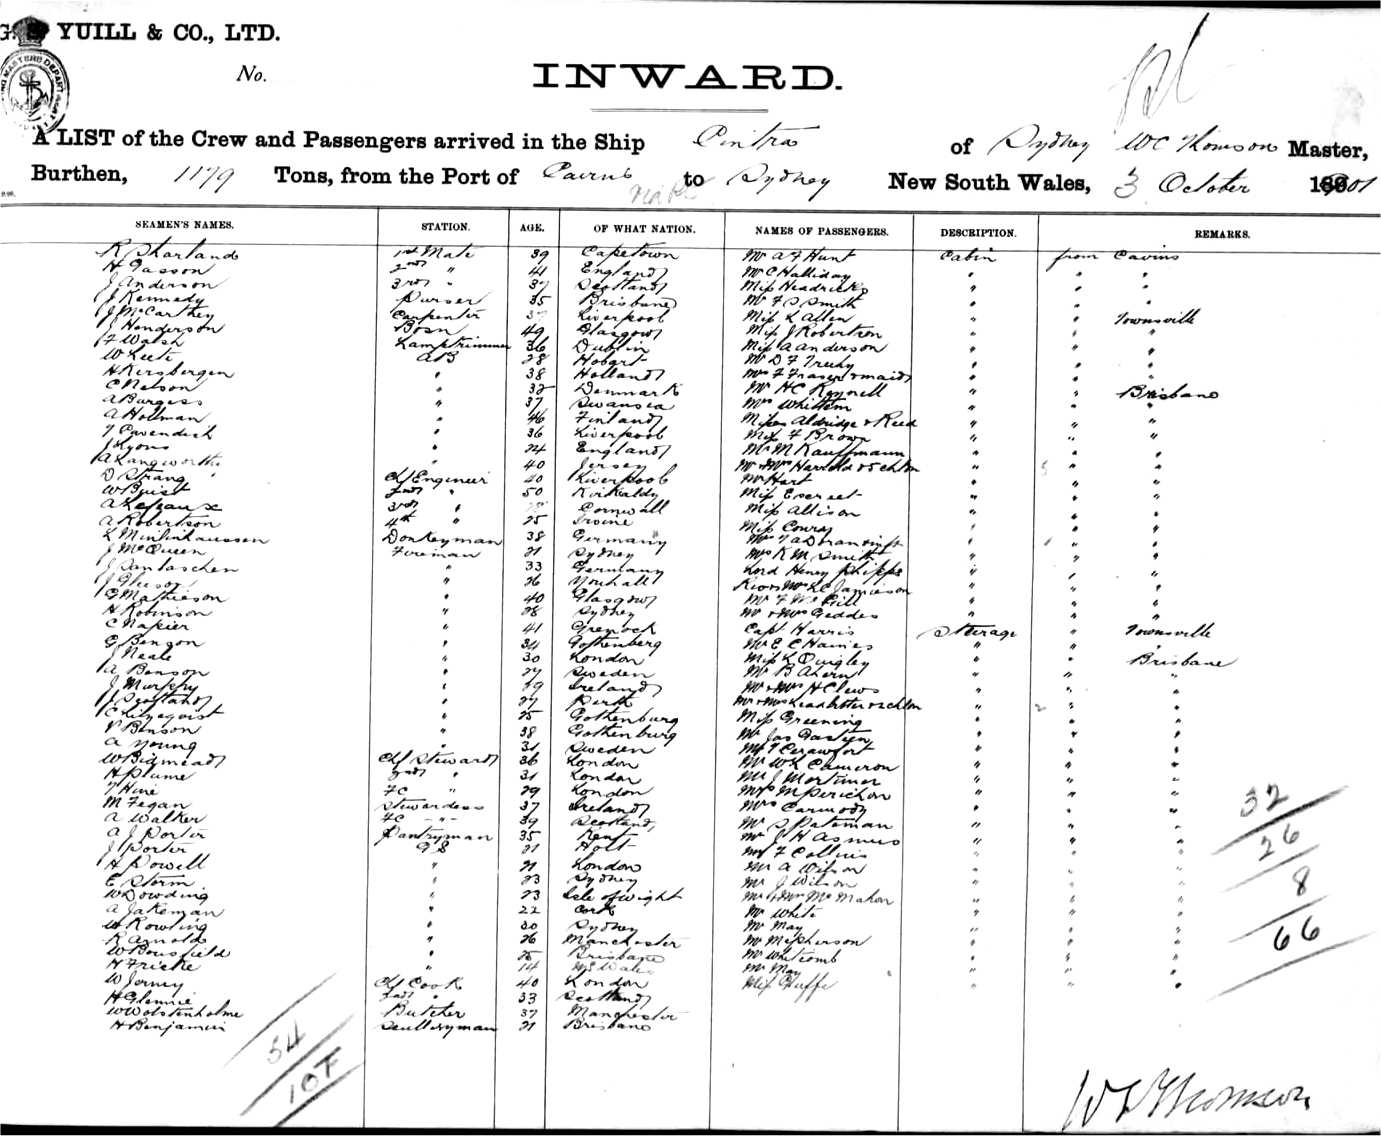 YUILL & CO., LTD.
No.
INWARD.
A LIST of the Crew and Passengers arrived in the Ship Cintra of Sydney WC Thomson Master,
Burthen, 1179 Tons, from the Port of Cairns to Sydney New South Wales, 3 October 1901
SEAMEN'S NAMES. STATION. AGE. OF WHAT NATION. NAMES OF PASSENGERS. DESCRIPTION. REMARKS.
R Sharland 1st Mate 39 Capetown Mr A F Hunt Cabin from Cairns
H Gasson 2nd " 41 England Mr C Halliday " " "
J Anderson 3rd " 37 Scotland Miss Headricks " " "
J Kennedy Purser 35 Brisbane Mr F S Smith " " "
J McCarthy Carpenter Liverpool Miss L Allen " " Townsville
J Henderson Bosn 49 Glasgow Miss J Robertson " " "
F Walsh Lamptrimmer 36 Dublin Miss A Anderson " " "
W Leete AB 28 Hobart Mr D F " " "
H Kersbergen " 38 Holland Mrs F Fraser & maid " " "
C Nelson " 32 Denmark Mr HC " " Brisbane
A Burgess " 37 Swansea Mrs Whittem " " "
A Hollman " 46 Finland Misses Aldridge & Reed " " "
T Cavendish " 36 Liverpool Miss F Brown " " "
J Lyons " 24 England Mr M Kauffmann " " "
A Langworthy " 40 Jersey Mr & Mrs Harrold & 5 chldn " " "
D Strang Chf Engineer 40 Liverpool Mr Hart " " "
W Buist 2nd " 50 Kirkaldy Miss Everett " " "
A 3rd " Cornwall Miss Allison " " "
A Robertson 4th " 25 Irvine Miss Conroy " " "
L Donkeyman 38 Germany Mr " " "
J McQueen Fireman 21 Sydney Mrs K M Smith " " "
J " 33 Germany Lord Henry Phipps " " "
J Gleeson " 26 Youhall Mrs LC Jamieson " " "
G Mathieson " 40 Glasgow Mr F McGill " " "
H Robinson " 28 Sydney Mr & Mrs Geddes " " "
C Napier " 41 Grenock Capt Harris Steerage " Townsville
G Benson " 34 Gothenberg Mr E C Haines " " "
J Neale " 30 London Miss L Quigley " " Brisbane
A Benson " 27 Sweden Mr B Ahern " " "
J Murphy " 39 Ireland Mr & Mrs H Clews " " "
J Scotland " 27 Perth Mr & Mrs Leadbetter & 2 chldn " " "
C Liljeqvist " 25 Gothenburg Miss Greening " " "
P Benson " 38 Gothenburg Mr Jas " " "
A Young " 31 Sweden Mr T " " "
W Bigmead Chf Steward 36 London Mr WL Cameron " " "
H Plume 2nd " 31 London Mr J Mortimer " " "
T Hine FC " 29 London Mrs M Perichon " " "
M Fegan Stewardess 37 Ireland Mrs Carmody " " "
A Walker FC " 39 Scotland Mr S Pateman " " "
A J Porter Pantryman 35 Kent Mr J H Asmus " " "
J Porter GS 21 Holt Mr F Collins " " "
H Powell " 21 London Mr A Wilson " " "
E Storm " 23 Sydney Mr J Wilson " " "
W Dowding " 23 Isle of Wight Mr & Mrs McMahon " " "
A Jakeman " 22 Cork Mr White " " "
W Rowling " 20 Sydney Mr May " " "
R Arnold " 26 Manchester Mr McPherson " " "
W Bousfield " 25 Brisbane Mr Whitcomb " " "
H Fricke " 14 NS Wales Mr May " " "
W Jerney Chf Cook 40 London Miss Huffe " " "
H Glennie 2nd " 33 Scotland
W Wolstenholme Butcher 37 Manchester
H Benjamin Sculleryman 21 Brisbane
32
26
8
66
54
107
WC Thomson